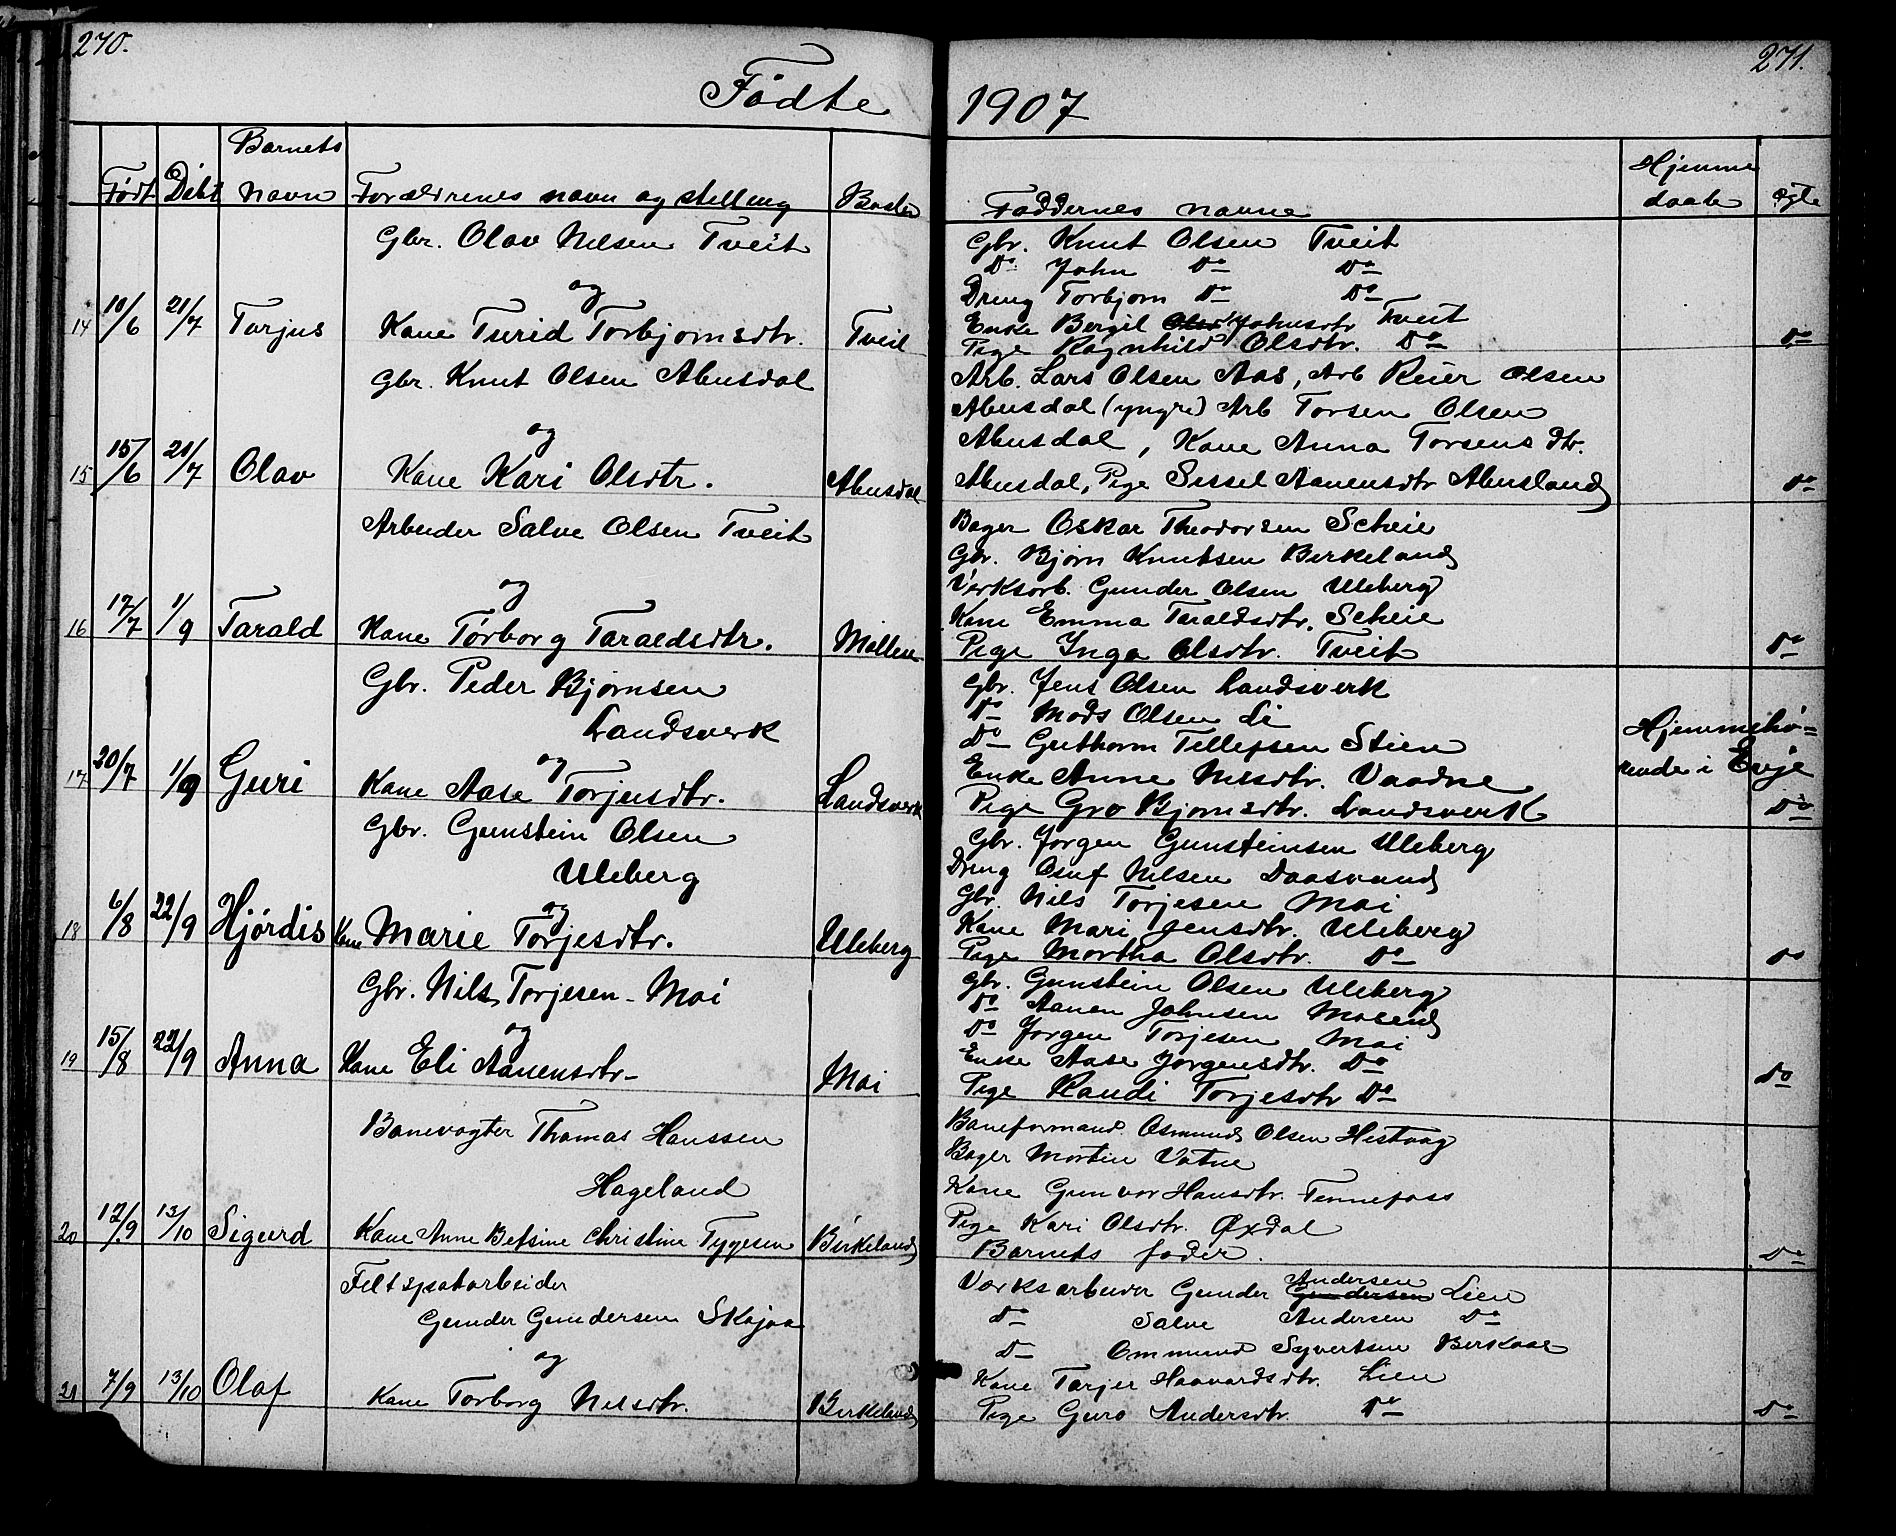 270.
Fødte
Barnets
Født Døbt navn Forældrenes navn og stilling Bosted
Gbr. Olav Nilsen Tveit
og
14 10/6 21/7 Tarjus Kone Turid Torbjørnsdtr. Tveit
Gbr. Knut Olsen Abusdal
og
15 15/6 21/7 Olav Kone Kari Olsdtr. Abusdal
Arbeider Salve Olsen Tveit
og
16 17/7 1/9 Tarald Kone Torborg Taraldsdtr. Mollen
Gbr. Peder Bjørnsen
Landsverk
og
17 20/7 1/9 Guri Kone Aase Torjusdtr. Landsverk
Gbr. Gunstein Olsen
Uleberg
og
18 6/8 22/9 Hjördis Kone Marie Torjesdtr. Uleberg
Gbr. Nils Torjesen - Moi
og
19 15/8 22/9 Anna Kone Eli Aanensdtr - Moi
Banevogter Thomas Hanssen
Hageland
20 12/9 13/10 Sigurd Kone Anne Betsine Christine Tygesen Birkeland
Feltspatarbeider
Gunder Gundersen Skajaa
og
21 7/9 13/10 Olaf Kone Torborg Nilsdtr. Birkeland
271.
1907
Faddernes navne Hjemmedaab Ægte
Gbr. Knut Olsen Tveit
Do John Do Do
Dreng Torbjørn Do Do
Enke Bergit Olsd Johnsdtr Tveit
Pige Ragnhild Olsdtr. Do Do
Arb. Lars Olsen Aas, Arb Reier Olsen
Abusdal (yngre) Arb Torsen Olsen
Abusdal, Kone Anna Torsens dtr.
Abusdal, Pige Sissel Aanensdtr Abusland Do
Bager Oskar Theodorsen Scheie
Gbr. Bjørn Knutsen Birkeland
Verksarb. Gunder Olsen Uleberg
Kone Emma Taraldsdtr. Scheie
Pige Inga Olsdtr. Tveit Do
Gbr. Jens Olsen Landsverk
Do Mads Olsen Li
Do Guthorm Tellefsen Stien
Enke Anne Nilsdtr. Vaadne
Pige Gro Bjørnsdtr. Landsverk Do
Hjemmehö=
rende i Evje
Gbr. Jorgen Gunsteinsen Uleberg
Dreng Osuf Nilsen Daasvand
Gbr. Nils Torjesen Moi
Kone Mari Jensdtr. Uleberg
Pige Martha Olsdtr. Do Do
Gbr. Gunstein Olsen Uleberg
Do Aanen Johnsen
Do Jorgen Torjesen Moi
Enke Aase Jorgensdtr. Do
Pige Randi Torjesdtr Do Do
Baneformand Osmund Olsen Hestvag
Bager Morten Vatne
Kone Gunvor Hansdtr. Fennefoss
Pige Kari Olsdtr. Øxdal
Barnets fader. Do
Værksarbeider Gunder Gundersen Andersen Lien
Do Salve Andersen Do
Do Ommund Syvertsen Birkaas
Kone Tarjer Haavardsdtr. Lien
Pige Guro Andersdtr. Do Do